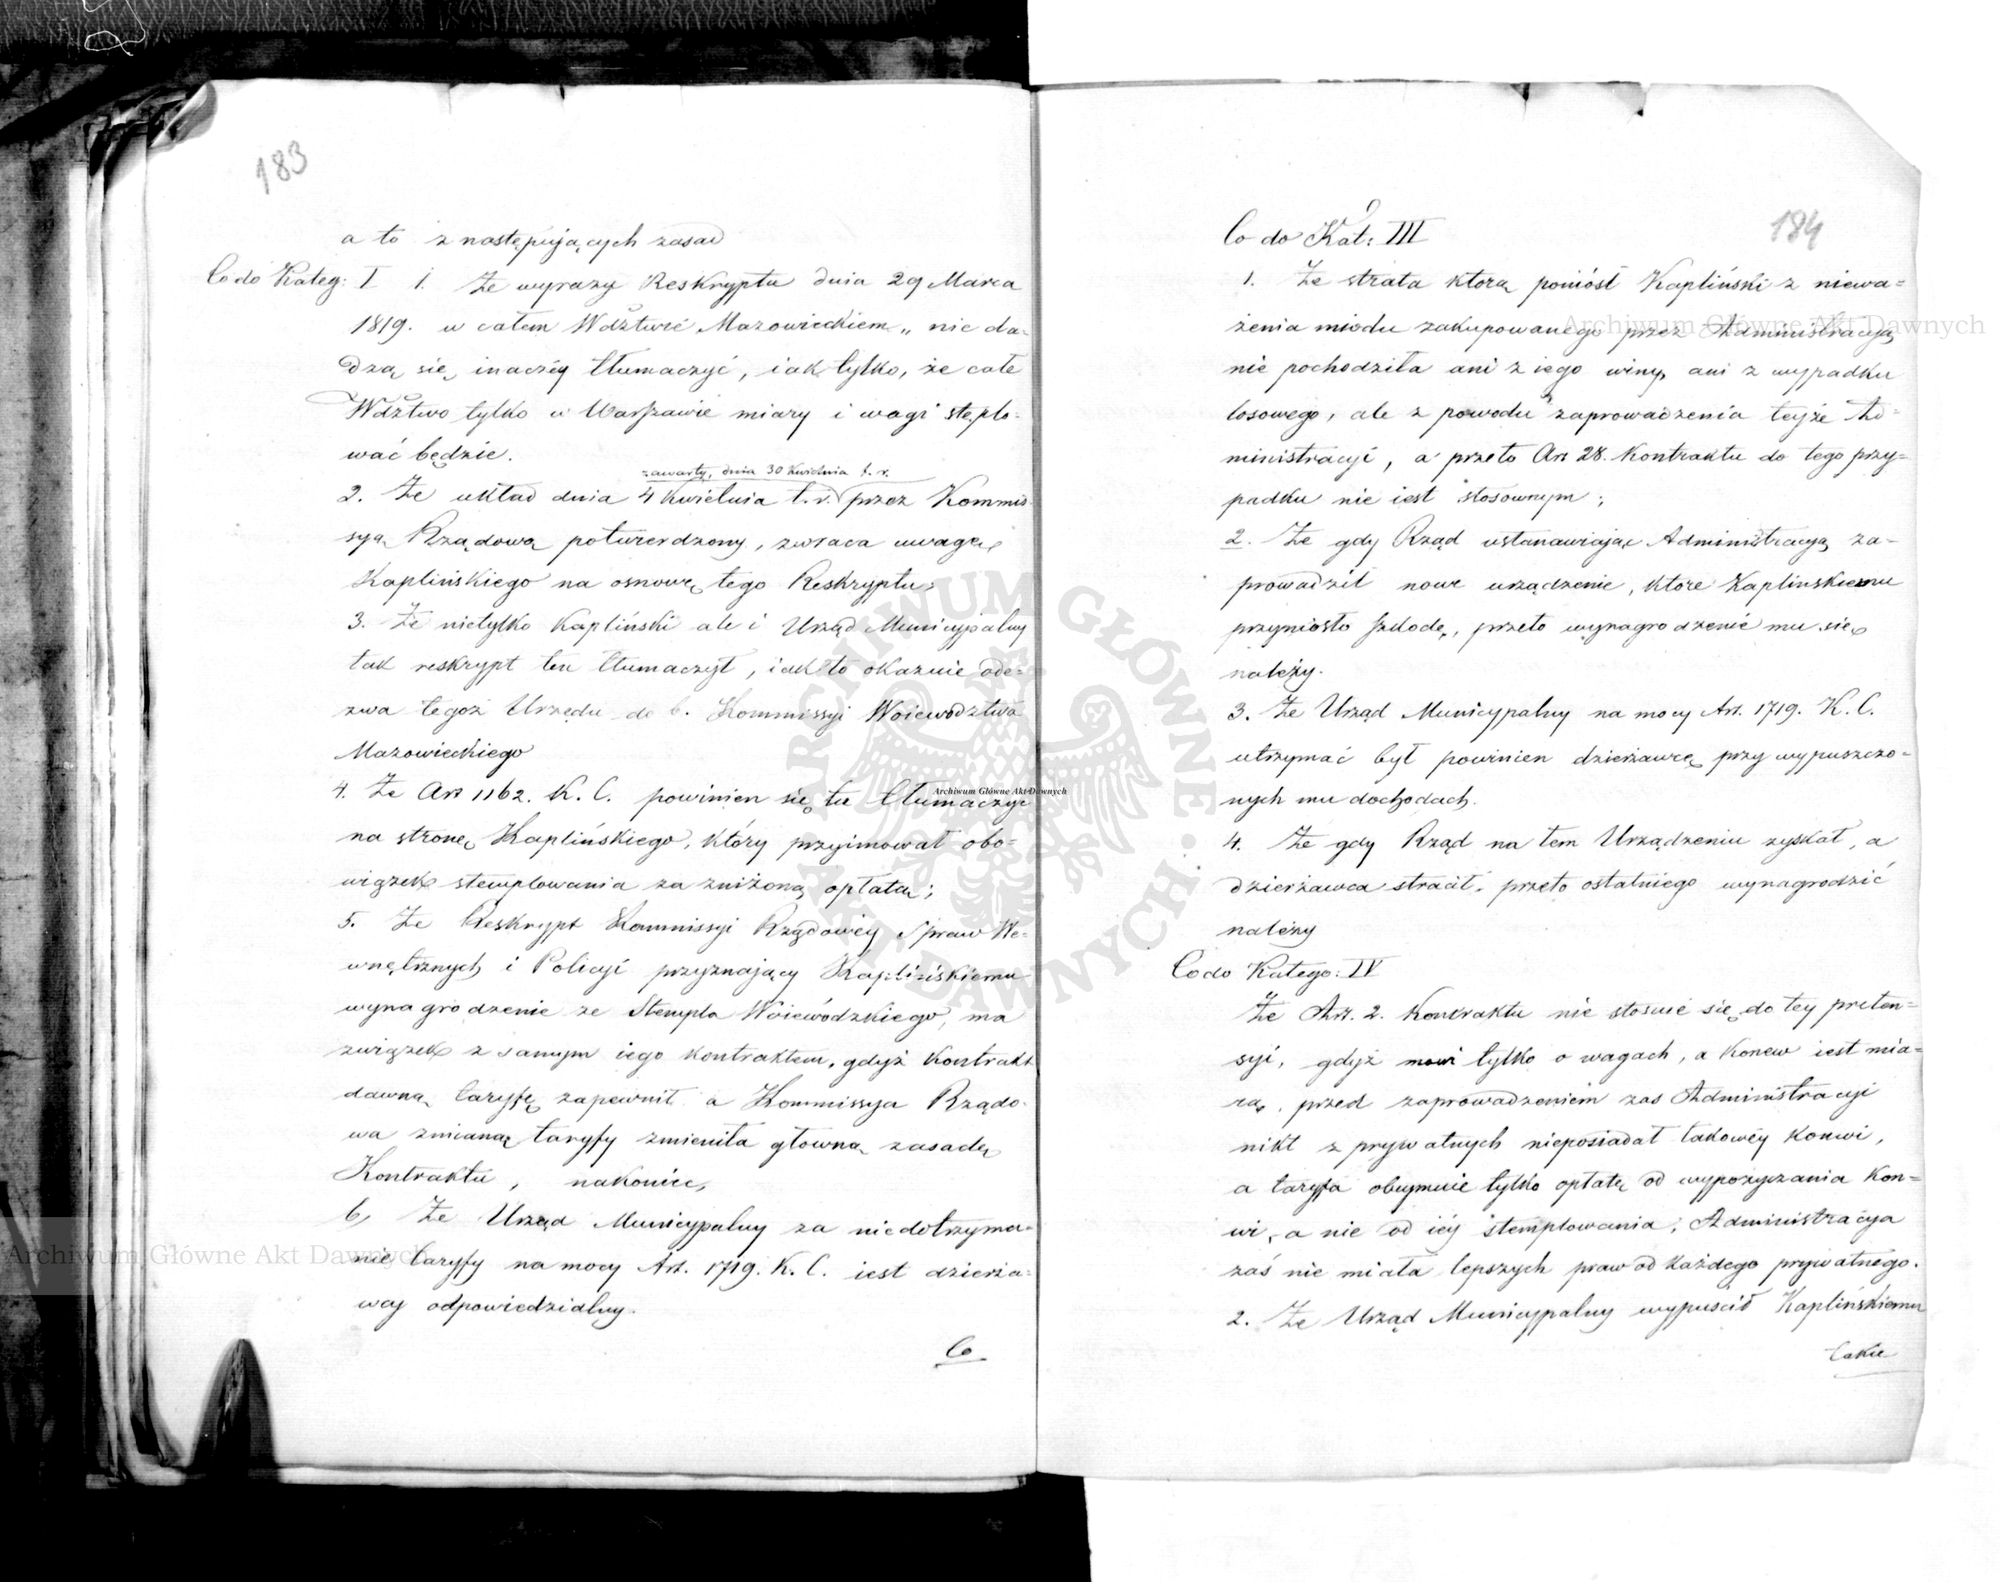 183
a to z następujących zasad
Co do Kateg: I 1. Że wyrazy Reskryptu dnia 29 Marca
1819. w całem Wdztwie Mazowieckiem „ nie da-
dzą się inaczéy tłumaczyć, iak tylko, że całe
Wdztwo tylko w Warszawie miary i wagi stęplo-
wać będzie.
zawarty, dnia 30 Kwietnia t. r.
2. Że układ dnia 4 Kwietnia t. r. przez Kommis
syą Rządową potwierdzony, zwraca uwagę
Kaplińskiego na osnowę tego Reskryptu;
3. Że nietylko Kapliński ale i Urząd Municypalny
tak reskrypt ten tłumaczył, iak to okazuie ode-
zwa tegoż Urzędu do b. Kommissyi Woiewództwa
Mazowieckiego
4. Że Art 1162. K. C. powinien się tu tłumaczyć
na stronę Kaplińskiego, który przyimował obo-
wiązek stemplowania za zniżoną opłatą;
5. Że Reskrypt Kommissyi Rządowéy Spraw We-
wnętrznych i Policyi przyznający Kaplińskiemu
wynagrodzenie ze Stempla Woiewódzkiego, ma
związek z samym iego kontraktem, gdyż Kontrakt
dawną taryffę zapewnił a Kommissya Rządo-
wa zmianą taryffy zmieniła główną zasadę
Kontraktu, nakoniec,
6, Że Urząd Municypalny za niedotrzyma-
nie taryffy na mocy Art. 1719. K. C. iest dzierża-
wcy odpowiedzialny.
Co
184
Co do Kat: III
1. Że strata którą poniósł Kapliński z niewa-
żenia miodu zakupowanego przez Administracyą
nie pochodziła ani z iego winy, ani z wypadku
losowego, ale z powodu zaprowadzenia teyże Ad-
ministracyi, a przeto Art 28. Kontraktu do tego przy-
padku nie iest stosownym;
2. Że gdy Rząd ustanawiaiąc Administracyą za-
prowadził nowe urządzenie, które Kaplinskiemu
przyniosło szkodę, przeto wynagrodzenie mu się
należy.
3. Że Urząd Municypalny na mocy Art. 1719. K. C.
utrzymać był powinien dzierżawcę przy wypuszczo-
nych mu dochodach.
4. Że gdy Rząd na tem Urządzeniu zyskał, a
dzierżawca stracił, przeto ostatniego wynagrodzić
należy
Co do Katego: IV
Że Art. 2. Kontraktu nie stosuie się do tey preten-
syi, gdyż mowi tylko o wagach, a Konew iest mia-
rą, przed zaprowadzeniem zas Administracyi
nikt z prywatnych nieposiadał takowéy konwi,
a taryffa obeymuie tylko opłatę od wypożyczania Kon-
wi, a nie od iéy stemplowania; Administracya
zaś nie miała lepszych praw od każdego prywatnego.
2. Że Urząd Municypalny wypuścił Kaplińskiemu
takie
Archiwum Główne Akt Dawnych
Archiwum Główne Akt Dawnych
Archiwum Główne Akt Dawnych
ARCHIWUM GŁÓWNE AKT DAWNYCH